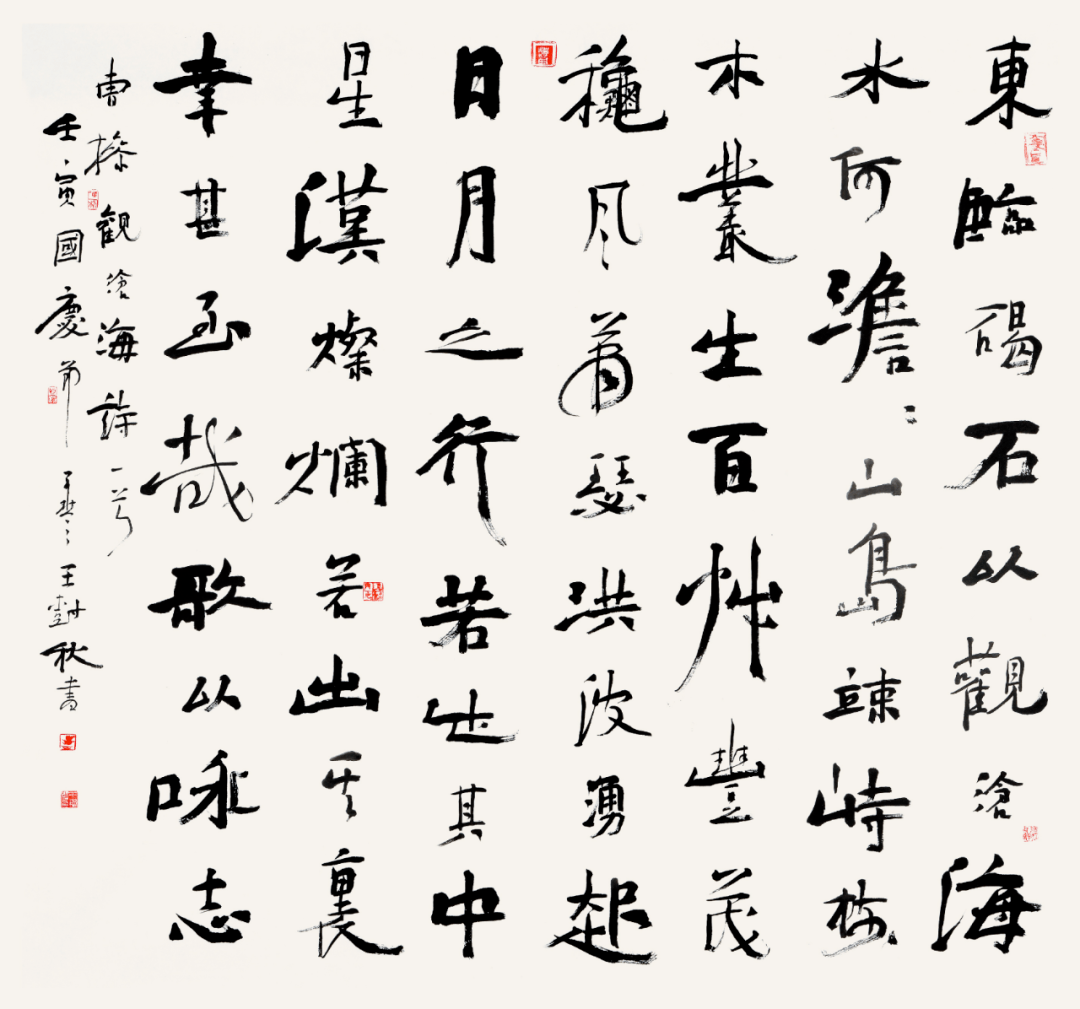 東臨碣石以觀滄海
水何澹〻山島竦峙樹
木叢生百艸豐茂
龝風蕭瑟洪波湧起
日月之行若出其中
星漢燦爛若出其裏
幸甚至哉歌以咏志
曹操觀滄海詩一首
壬寅國慶節 王樹秋書